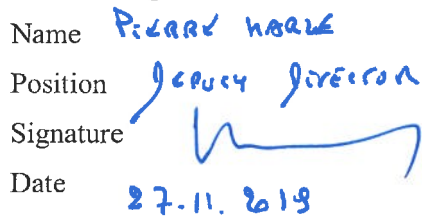 Name PiERRE HARLE
Position DEPUTY DIRECTOR
Signature
Date 27.11.2019